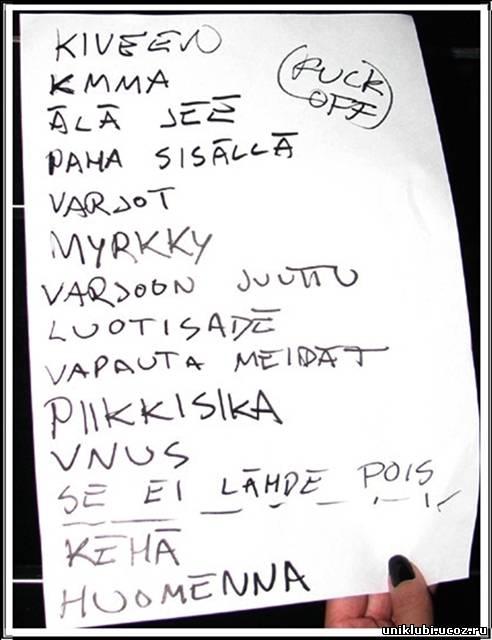 KIVEEN
KMMA
(FUCK OFF)
ÄLÄ JEË
PAHA SISÄLLÄ
VARJOT
MYRKKY
VARJOON JUUTTU
LUOTISADE
VAPAUTA MEIDÄT
PIIKKISIKA
VNUS
SE EI LÄHDE POIS
KEHÄ
HUOMENNA
uniklubi.ugoz.ru